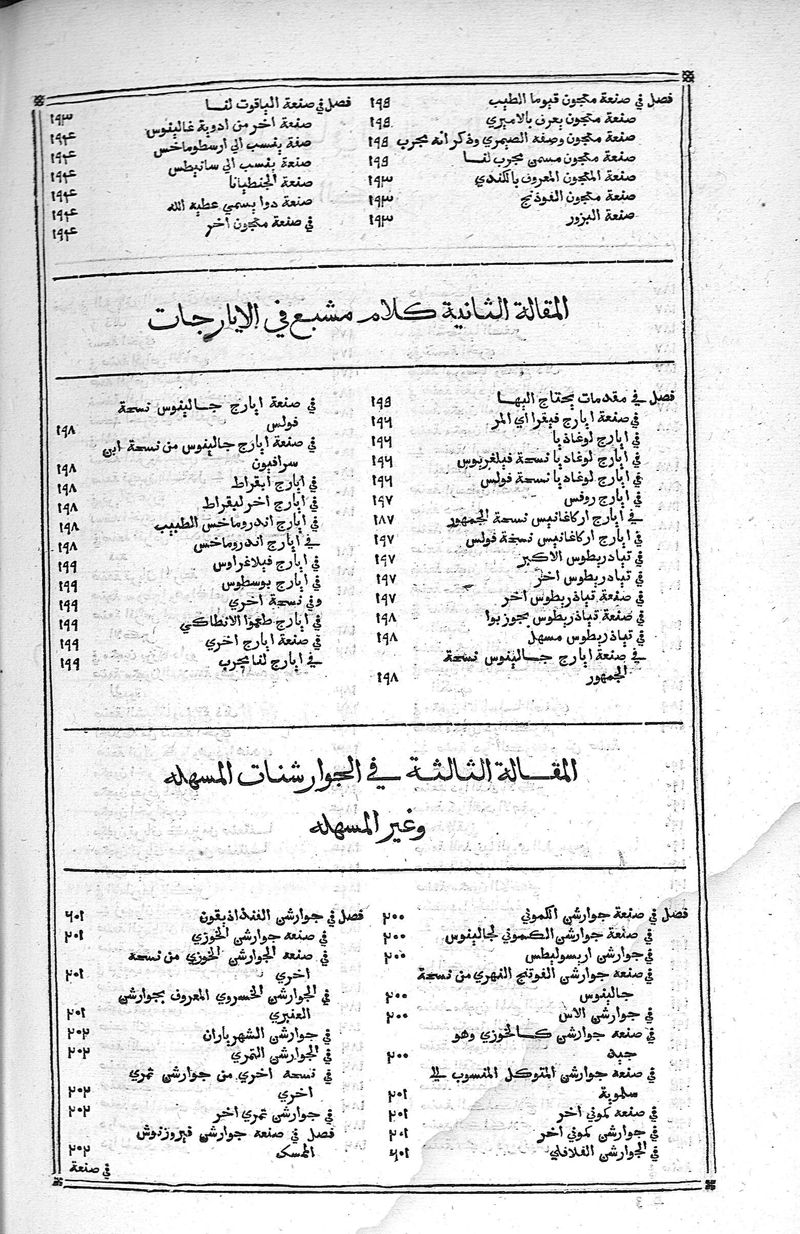 فصل في صنعة معجون قيوما الطيب ١٩٤
صنعة معجون يعرف بالاميري ١٩٤
صنعة معجون وصفه الصيمري وذكر انه مجرب ١٩٤
صنعة معجون مسمي مجرب لنا ١٩٤
صنعة المعجون المعروف بالكندي ١٩٣
صنعة معجون الفوذنج ١٩٣
صنعة البزور ١٩٣
فصل في صنعة الياقوت لنا ١٩٣
صنعة اخر من ادوية غالينوس ١٩٤
صفة ينسب الي ارسطوماخس ١٩٤
صنعة ينسب الي سانيطس ١٩٤
صنعة الجنطيانا ١٩٤
صنعة دوا يسمي عطية الله ١٩٤
في صنعة معجون اخر ١٩٤
المقالة الثانية كلام مشبع في الايارجات
فصل في مقدمات يحتاج اليها ١٩٤
في صنعة ايارج فيقرا اي المر ١٩٦
في ايارج لوغاذيا ١٩٦
في ايارج لوغاديا نسخة فيلغريوس ١٩٦
في ايارج لوغاديا نسخة فولس ١٩٦
في ايارج روفس ١٩٧
في ايارج اركاغانيس نسخة الجمهور ١٨٧
في ايارج اركاغانيس نسخة فولس ١٩٧
في تيادريطوس الاكبر ١٩٧
في تيادريطوس اخر ١٩٧
في صنعة تياذريطوس اخر ١٩٧
في صنعة تياذريطوس بجوزبوا ١٩٨
في تياذريطوس مسهل ١٩٨
في صنعة ايارج جالينوس نسخة
الجمهور ١٩٨
في صنعة ايارج جالينوس نسخة
فولس ١٩٨
في صنعة ايارج جالينوس من نسخة ابن
سرافيون ١٩٨
في ايارج ابقراط ١٩٨
في ايارج اخر لبقراط ١٩٨
في ايارج اندروماخس الطبيب ١٩٨
في ايارج اندروماخس ١٩٨
في ايارج فيلاغراوس ١٩٩
في ايارج يوسطوس ١٩٩
وفي نسخة اخري ١٩٩
في ايارج طغموا الانطاكي ١٩٩
في صنعة ايارج اخري ١٩٩
في ايارج لنا مجرب ١٩٩
المقالة الثالثة في الجوارشنات المسهله
وغير المسهله
فصل في صنعة جوارشن الكموني ٢٠٠
في صنعة جوارشن الكموني لجالينوس ٢٠٠
في جوارشن اريسوليطس ٢٠٠
في صنعة جوارشن الفوتنج النهري من نسخة
جالينوس ٢٠٠
في جوارشن الاس ٢٠٠
في صنعه جوارشن كالخوزي وهو
جيد ٢٠٠
في صنعه جوارشن المتوكل المنسوب الي
سلموية ٢٠١
في صنعه كموني اخر ٢٠١
في جوارشن كموني اخر ٢٠١
في الجوارشن الفلافلي ٢٠١
فصل في جوارشن الفنداذيقون ٢٠١
في صنعه جوارشن الخوزي ٢٠١
في صنعه الجوارشن الخوزي من نسخة
اخري ٢٠١
في الجوارشن الخسروي المعروف بجوارشن
العنبري ٢٠١
في جوارشن الشهرياران ٢٠٢
في الجوارشن التمري ٢٠٢
في نسخه اخري من جوارشن تمري
اخري ٢٠٢
في جوارشن تمري اخر ٢٠٢
فصل في صنعه جوارشن فيروزنوش
المسك ٢٠٢
في صنعة